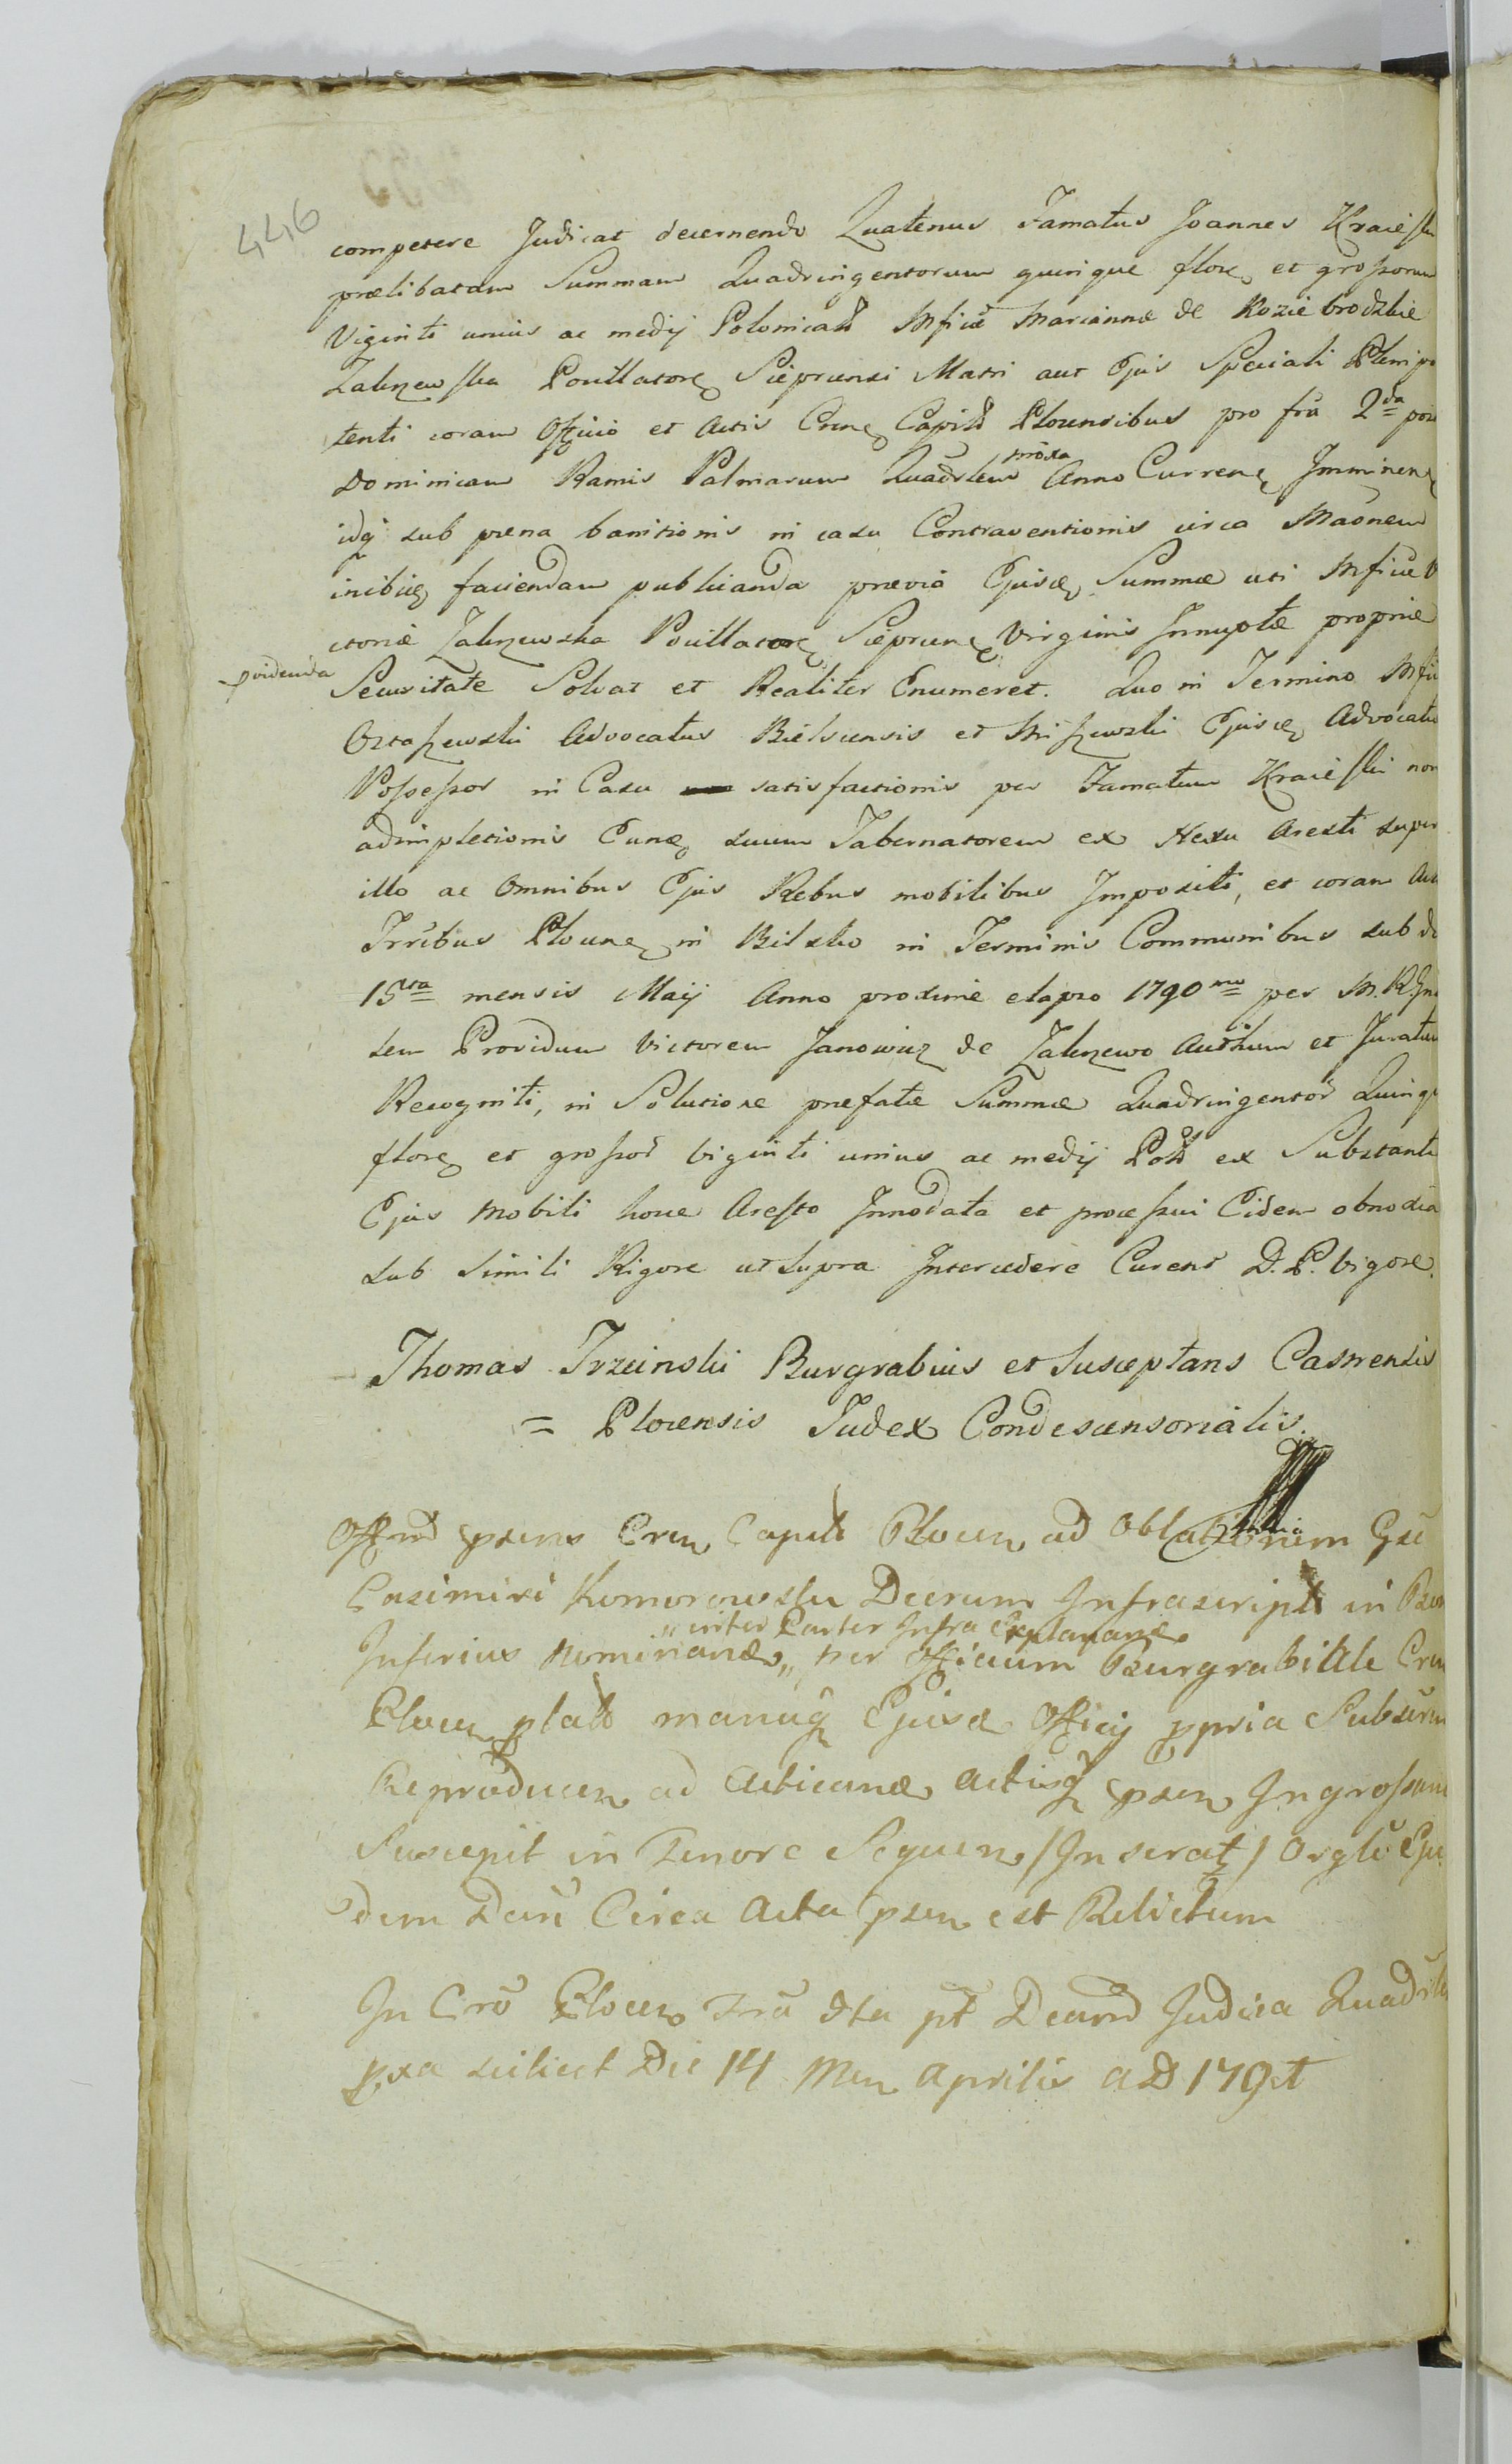 446
competere Judicat decernendo Quatenus Famatus Joannes Kraiesski
prælibatam Summam Quadringentorum quinque flore et grossorum
Viginti unius ac medij Polonicalõ Mficæ Mariannæ de Koziebrodzkie
Zalezewska Pocillatore Sieprcensi Matri aut Ejus Speciali Plenipo
tenti coram Officio et Actis Crene Capitõ Plocensibus pro frã 2da post
Dominicam Ramis Palmarum Quadrlem proxa Anno Currene Imminene
idq sub pœna banitionis in casu Contraventionis circa Mãonem
inibiq faciendam publicanda prævia Ejusce Summæ uti Mficæ V
ctoriæ Zalezewska Pocillatore Sieprcene Virginis Innuptæ propriæ
providenda
Securitate Solvat et Realiter Enumeret. Quo in Termino Mfi
Ostaszewski Advocatus Bielscensis et Miszewski Ejusce Advocatiæ
Possessor in Casu satisfactionis per Famatum Kraiesski non
adimpletionis Eunde suum Tabernatorem ex Nexu Aresti super
illo ac Omnibus Ejus Rebus mobilibus Impositi, et coram Act
Trribus Plocene in Bilsko in Terminis Communibus sub die
15ta mensis Maij Anno proxime elapso 1790mo per M. R. Gna
lem Providum Victorem Janowicz de Zalezewo Authum et Juratum
Recogniti, in Solutione præfatæ Summæ Quadringentor Quinqu
flore et grossor viginti unius ac medij Polõ ex Substanti
Ejus Mobili hocce Aresto Innodata et processui Eidem obnoxia
sub simili Rigore ut supra Intercedere Curent D. P. vigore.
Thomas Trzcinski Burgrabius et Susceptans Castrensis
= Plocensis Judex Condescensorialis.
Offm psens Cren Capitõ Plocen ad Oblationem Gsi
Casimiri Komorowski Decrum Infrascriptõ in
Inferius nominane „ inter Partes Infra Explanane „ per Officium Burgrabiale Cren
Plocen platõ manuq Ejusce Officij ppria Subscrm
Reproducen ad Acticane Actisq psen Ingrossan
Suscepit in Tenore Sequen / Inserat / Orgle Eju
dem Decri Circa Acta psen est Relictum
In Cro Plocen Fria 5ta pt Dcam Judica Quadrle
pxa scilicet Die 14 Men Aprilis AD 1791